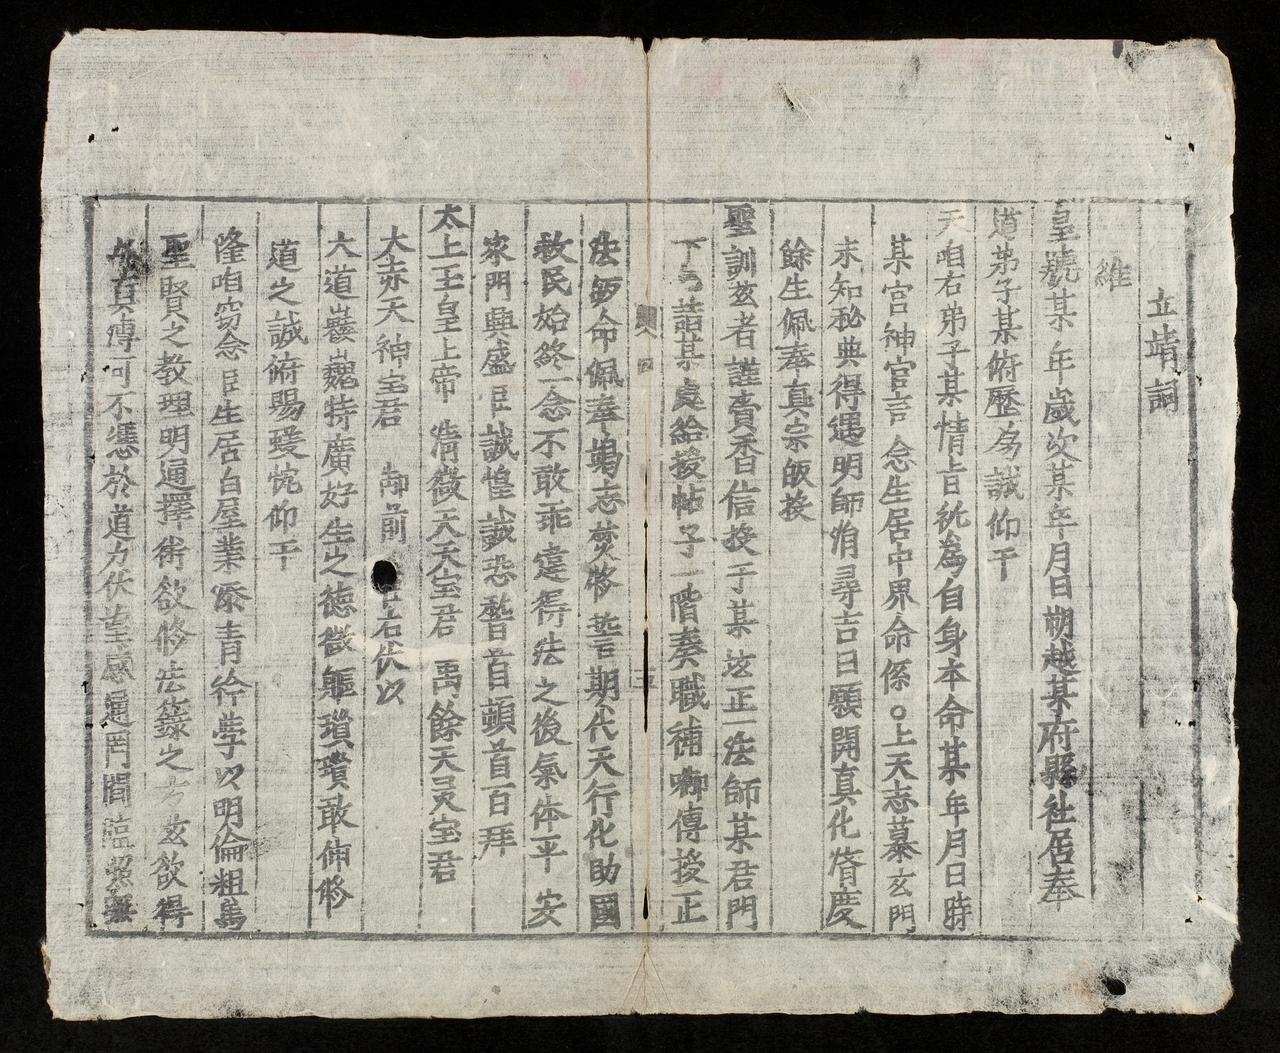 立靖詞
維
皇號某年歲次某年月日朔越某府縣社居奉
道弟子某俯歷為誠仰干
天咱右弟子某情旨祝為自身本命某年月日時
某宮神官言念生居中界命係○上天志慕玄門
未知秘典得遇明師涓尋吉日願開真化齋度
餘生佩奉真宗皈投
聖訓茲者謹賫香信投于某坛正一法師某君門
下 詣某處給授帖子一階奏職補 傳授正
法 命佩奉竭忠焚修誓期代天行化助國
救民始終一念不敢乖違得法之後氣体平安
家門興盛臣誠惶誠恐稽首頓首百拜
太上玉皇上帝 清微天天宝君 禹餘天灵宝君
太赤天神宝君 御前 臣 伏以
六道巖巍特廣好生之德微軀瑣瑣敢伸修
道之誠俯賜 仰干
隆咱窃念臣生居白屋業添青衿學以明倫粗為
聖賢之教理明通擇術欲修法籙之方茲欲得
真傳可不憑於道力伏望感通門間臨照無
四
五